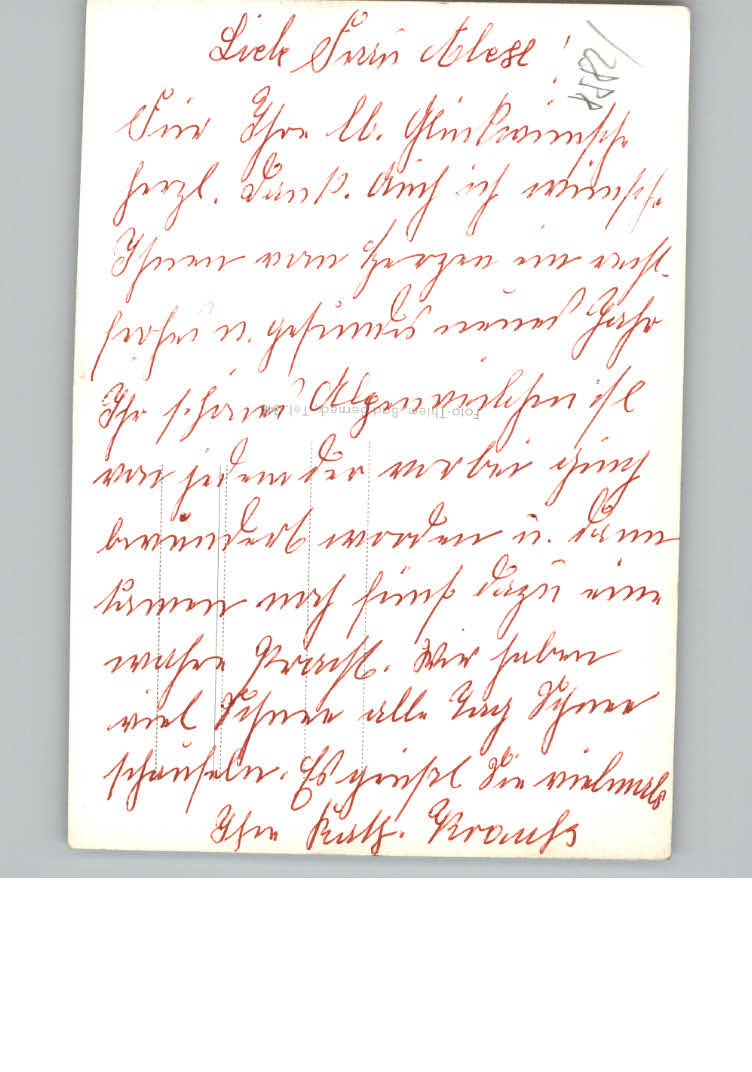 Liebe Frau Alese!
Für Ihre lb. Glückwünsche
herzl. Dank. Auch ich wünsche
Ihnen von Herzen ein recht
frohes u. gesundes neues Jahr
Ihr schönes Alpenveilchen ist
von jedem der vorbei ging
bewundert worden u. dann
kamen noch fünf dazu eine
wahre Pracht. Wir haben
viel Schnee alle Tag Schnee
schaufeln. Es grüßt Sie vielmals
Ihre Kath. Krauß
Foto-Thiem, Bad Berneck, Tel.